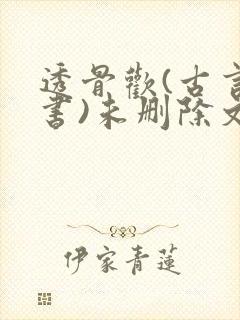 透骨歡(古言
書)未刪除文
伊家青蓮